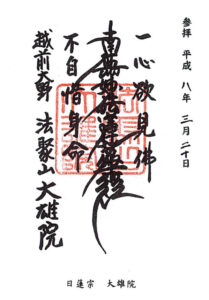 参拝 平成 八年 三月 二十日
一心欲見佛
南無妙法蓮華経
不自惜身命
越前大野 法聚山 大雄院
日蓮宗 大雄院